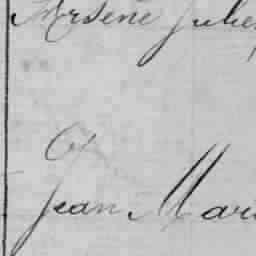 Arsène Julie
Et
Jean Mari